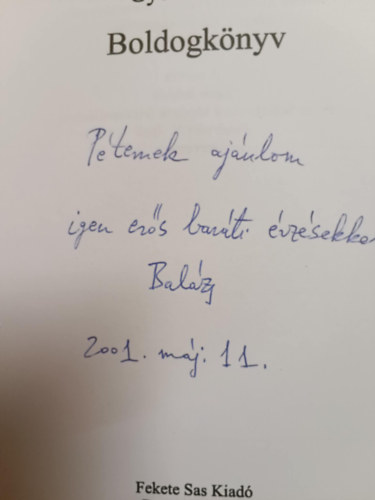 Boldogkönyv
Péternek ajánlom
igen erős baráti érzésekke
Balázs
2001. máj. 11.
Fekete Sas Kiadó